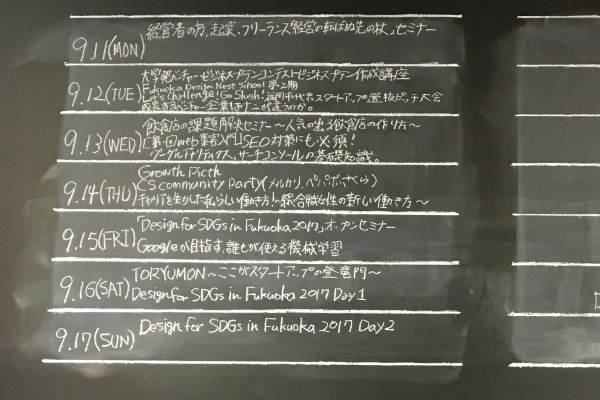 9.11(MON)
経営者の方、起業、フリーランス「経営の転ばぬ先の杖」セミナー
9.12(TUE)
大学発ベンチャービジネスプランコンテストビジネスプラン作成講座
Fukuoka Design Nest School 第2期
Let's challenge! Go Slush! 福岡市代表スタートアップ選抜ピッチ大会
成長するベンチャー企業はナニが違うのか。
9.13(WED)
「飲食店の課題解決セミナー〜人気の出る飲食店の作り方〜
【第一回web集客入門】SEO対策にも必須!
グーグルアナリティクス、サーチコンソールの基礎知識。
9.14(THU)
Growth Picth
CS community Party(メルカリ、ペパボ、さくら)
キャリアを生かした私らしい働き方!〜総合職女性の新しい働き方〜
9.15(FRI)
「Design for SDGs in Fukuoka 2017」オープンセミナー
Googleが目指す、誰もが使える機械学習
9.16(SAT)
TORYUMON〜ここがスタートアップの登竜門〜
Design for SDGs in Fukuoka 2017 Day1
9.17(SUN)
Design for SDGs in Fukuoka 2017 Day2